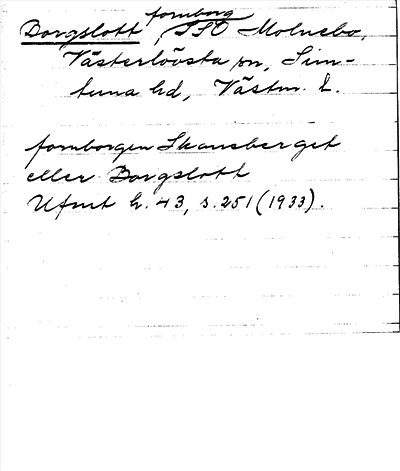 Borgslott fornborg, SSO Molnebo,
Västerlövsta sn, Sim-
tuna hd, Västm. l.
fornborgen Skansberget
eller Borgslott
Ufmt h. 43, s. 251 (1933).